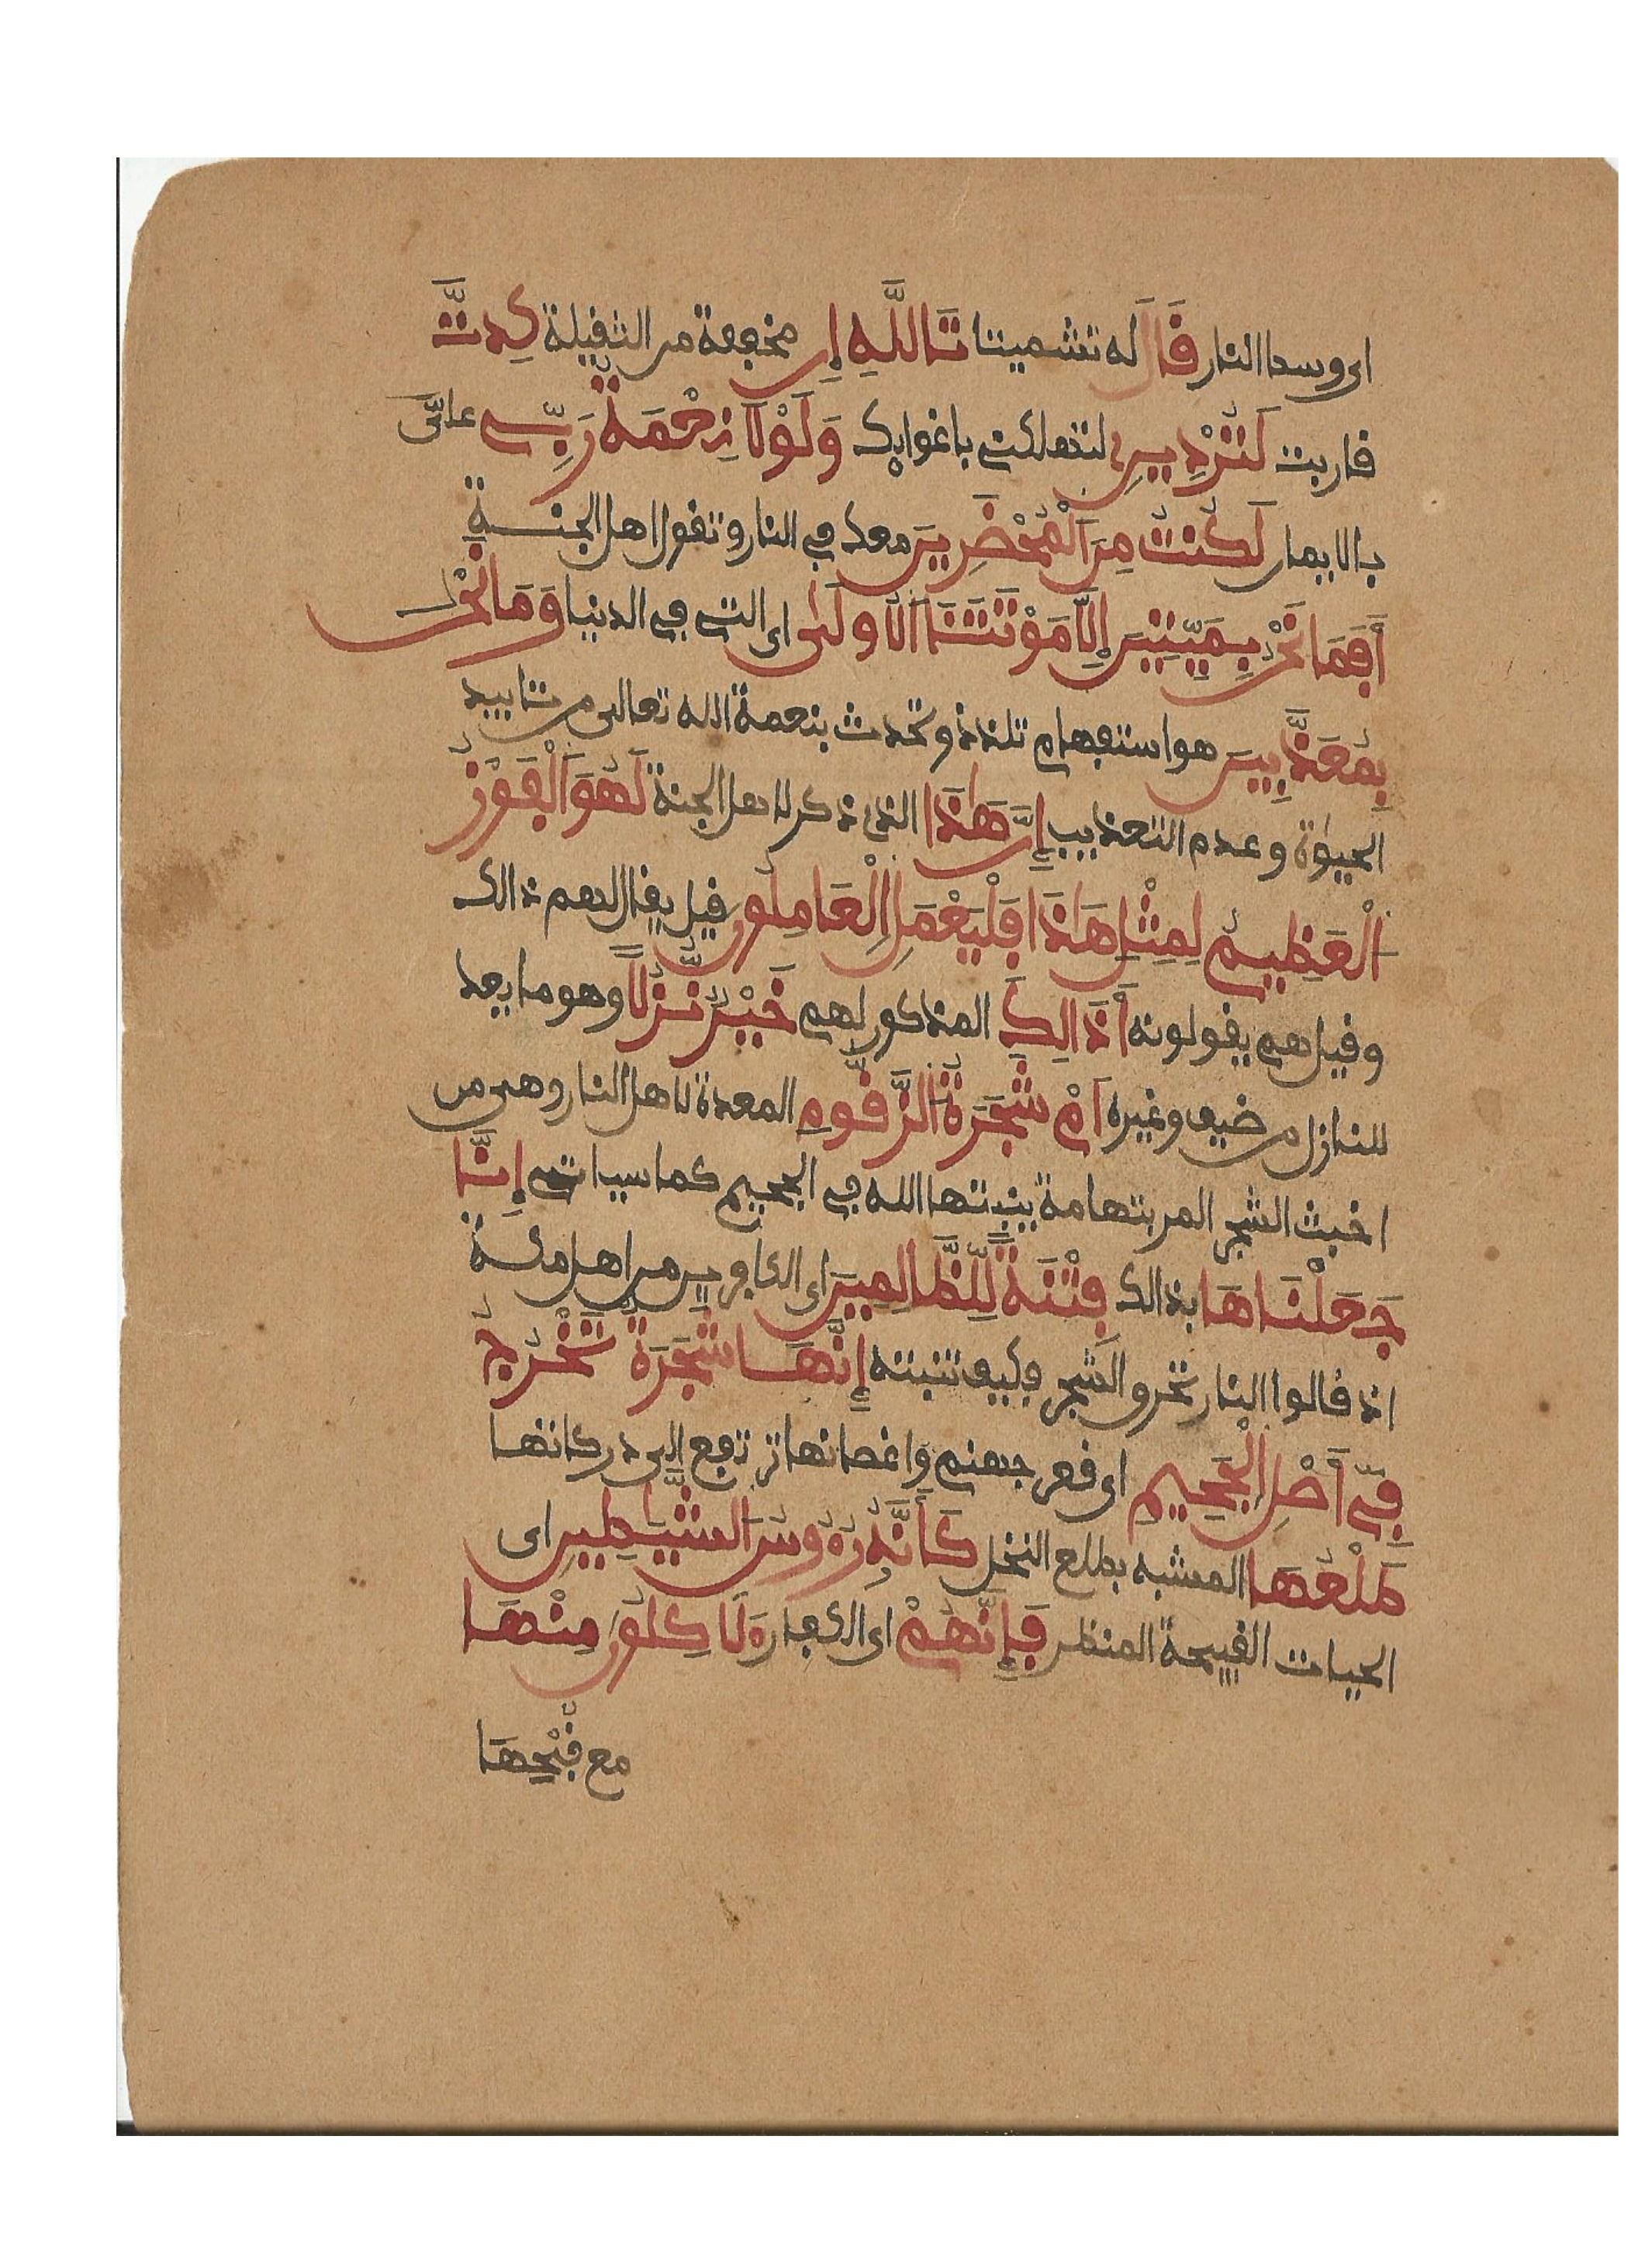 اى وسط النار قَالَ له تشميتا تَاللَّهِ إِن مخففة من الثقيلة كِدتَّ
قاربت لَتُرْدِينِ لتهلكنى باغوايك وَلَوْلَا نِعْمَةُ رَبِّي علىَّ
بالايمان لَكُنتُ مِنَ ٱلْمُحْضَرِينَ معك في النار وتقول اهل الجنــة
أَفَمَا نَحْنُ بِمَيِّتِينَ إِلَّا مَوْتَتَنَا ٱلْأُولَىٰ اى التي في الدنيا وَمَا نَحْنُ
بِمُعَذَّبِينَ هو استفهام تلذذ وتحدث بنعمة الله تعالى من تاييد
الحيوٰة وعدم التعذيب إِنَّ هَٰذَا الذى ذكر لاهل الجنة لَهُوَ ٱلْفَوْزُ
ٱلْعَظِيمُ لِمِثْلِ هَٰذَا فَلْيَعْمَلِ ٱلْعَامِلُونَ قيل يقال لهم ذالك
وقيل هم يقولونه أَذَالِكَ المذكور لهم خَيْرٌ نُّزُلًا وهو ما يعد
للنازل من ضيف وغيره أَمْ شَجَرَةُ ٱلزَّقُّومِ المعدة لاهل النار وهى من
اخبث الشجر المر بتهامة ينبتها الله في الجحيم كما سياتي إِنَّا
جَعَلْنَاهَا بذالك فِتْنَةً لِّلظَّالِمِينَ اى الكافرين من اهل مكــة
اذ قالوا النار تحرق الشجر فكيف تنبته إِنَّهَا شَجَرَةٌ تَخْرُجُ
فِيٓ أَصْلِ ٱلْجَحِيمِ اى قعر جهنم واغصانها ترتفع الى دركاتها
طَلْعُهَا المشبه بطلع النخل كَأَنَّهُۥ رُءُوسُ ٱلشَّيَٰطِينِ اى
الحيات القبيحة المنظر فَإِنَّهُمْ اى الكفار لَءَاكِلُونَ مِنْهَا
مع قُبْحِهَا